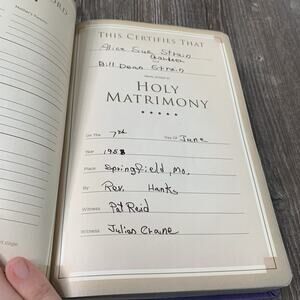 ORD
THIS CERTIFIES THAT
Alice Sue Strain
Bill Dean Strain
HOLY
MATRIMONY
On The 7th Day Of June
Year 1958
Place Springfield, Mo.
By Rev. Hanks
Witness Pat Reid
Witness Julian Crane